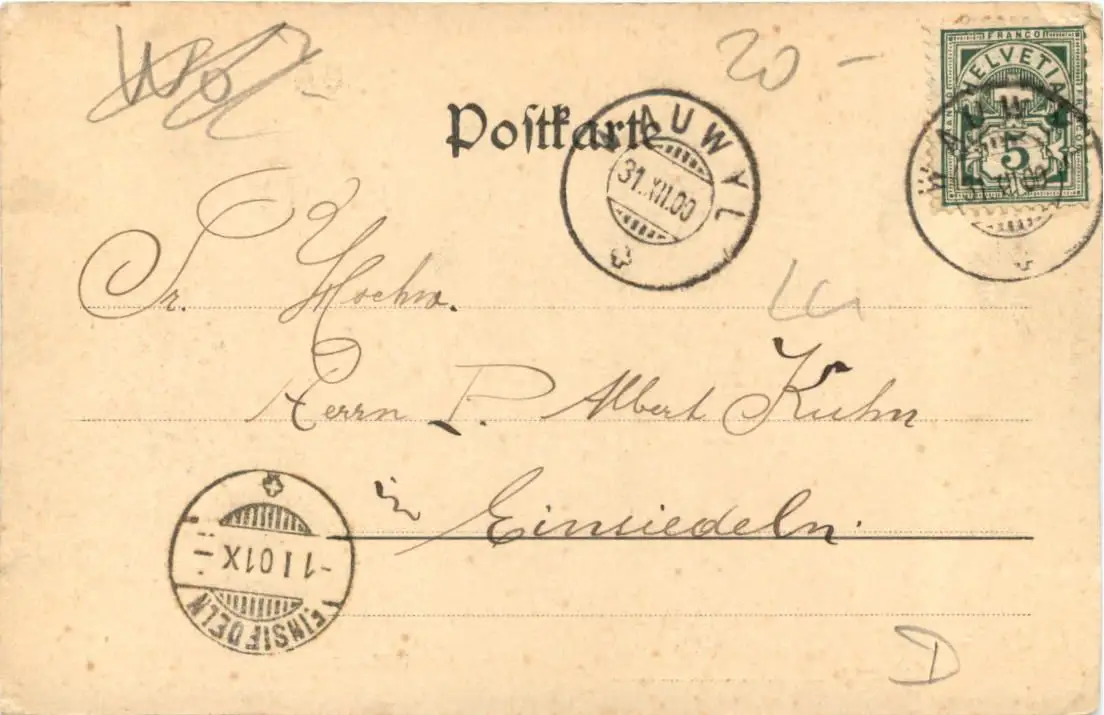 20 -
FRANCO
HELVETIA
5
WAUWYL
Poſtkarte
WAUWYL
31.XII.00
Sr. Hochw.
Herrn P. Albert Kuhn
in Einsiedeln.
-1 I 01 X-
EINSIEDELN
D